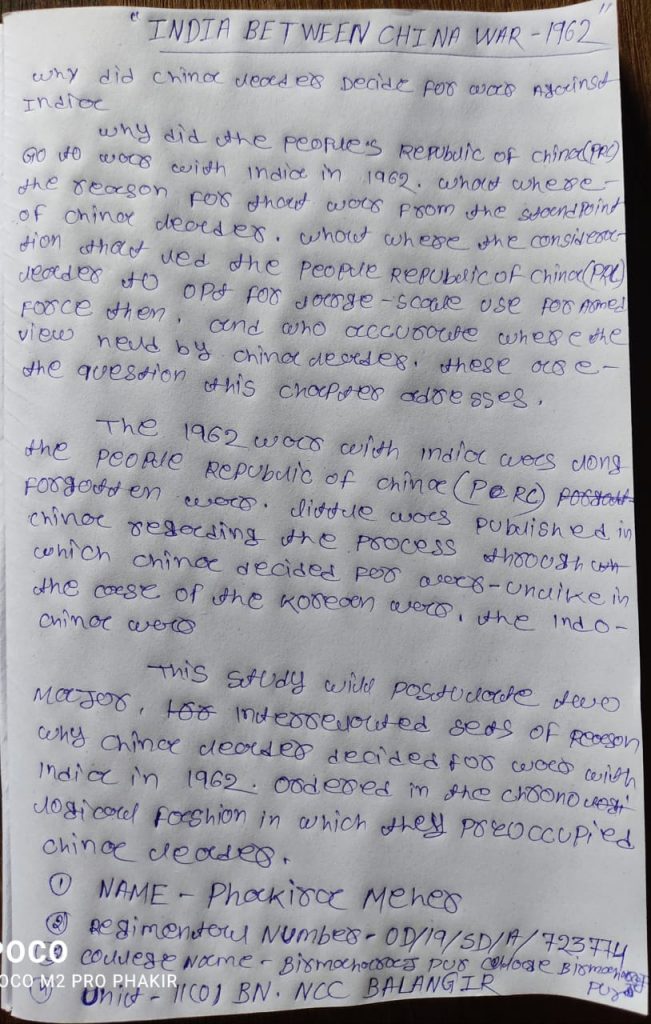 "INDIA BETWEEN CHINA WAR - 1962"
Why did China leader Decide for war Against
India
Why did the People's Republic of China (PRC)
Go to war with India in 1962. What where-
the reason for that war from the standpoint
of China leader. What where the considera-
tion that led the People Republic of China (PRC)
leader to opt for large-scale use for Armed
Force then. and who accurate where the
view held by China leader. these are-
the question this chapter adresses.
The 1962 war with India was long
the People Republic of China (PORC)
Forgotten war. little was published in
China regarding the process through wh
which China decided for war-unlike in
the case of the Korean war, the Indo-
China war
This study will postulate two
Major, interrelated sets of reason
why China leader decided for war with
India in 1962. ordered in the chronologi
logical fashion in which they preoccupied
China leader.
① NAME - Phakira Meher
② Regimental Number - OD/19/SD/A/723774
③ College Name - Birmaharaj pur College Birmaharaj
pur
④ Unit - 11(O) BN. NCC BALANGIR
POCO
POCO M2 PRO PHAKIR